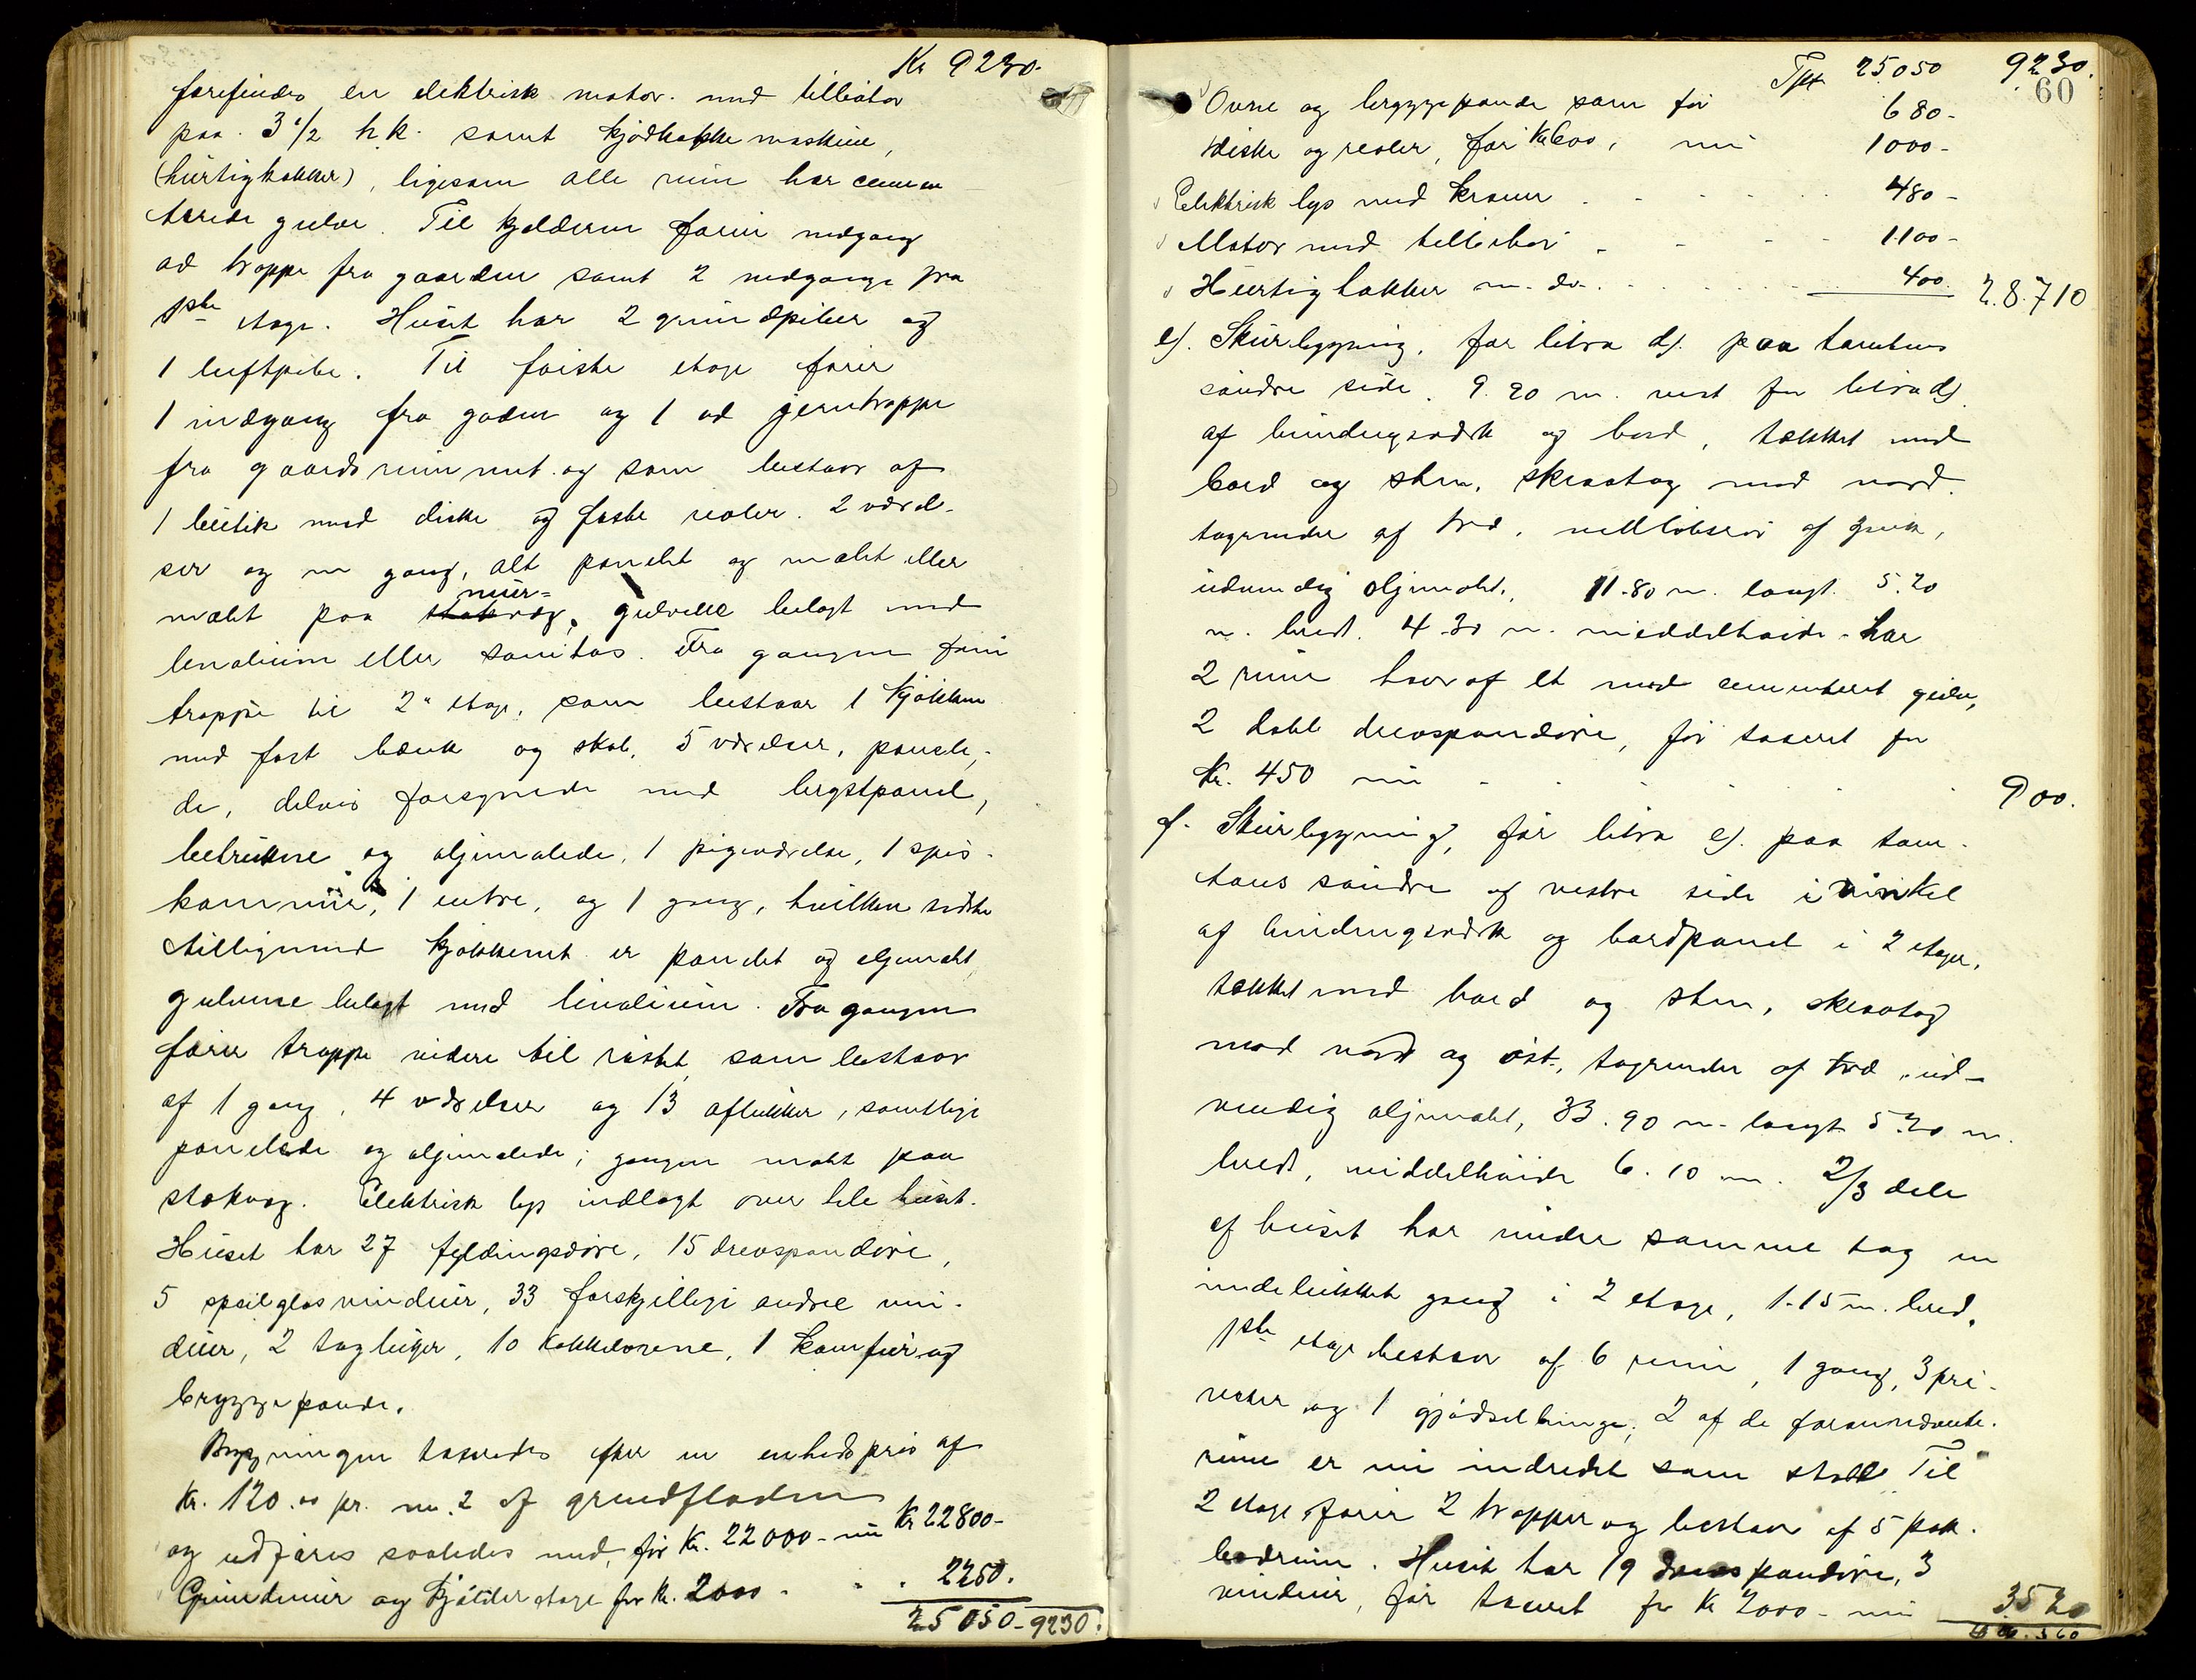 Kr 9230.
forefindes en elektrisk motor med tilbeior
paa 3 1/2 h.k. samt kjødhakkemaskine,
(hurtighakker), ligesom alle rum har cemen
terede gulve. Til kjelderen fører nedgang
ad trappe fra gaarden samt 2 nedgange fra
1ste etage. Huset har 2 grundpiber og
1 luftpibe. Til første etage fører
1 indgang fra gaden og 1 ad jerntrappe
fra gaardsrummet og som bestaar af
1 butik med diske og faste reoler. 2 værel-
ser og en gang, alt panelet og malet eller
mur=
malt paa stokvæg, gulvene belagt med
linolium eller sanitas. Fra gangen fører
trappe til 2" etage, som bestaar 1 kjøkken
med fast bænk og skab, 5 værelser, panele-
de, delvis forsynede med brystpanel,
betrukne og oljemalede, 1 pigeværelse, 1 spis-
kammer, 1 entre, og 1 gang, hvilken sidste
tilligemed kjøkkenet er panelet og oljemalt
gulvene belagt med linolium. Fra gangen
fører trappe videre til røstet, som bestaar
af 1 gang, 4 værelser og 13 aflukker, samtlige
panelede og oljemalede; gangen malt paa
stokvæg. Elektrisk lys indlagt over hele huset.
Huset har 27 fyldingsdøre, 15 drevspandøre,
5 speilglasvinduer, 33 forskjellige andre vin-
duer, 2 tagluger, 10 kakkelovne, 1 komfur og
bryggepande.
Bygningen taxeredes efter en enhedspris af
Kr. 120.00 pr. m.2 af grundfladen
og udføres saaledes med, før Kr. 22000 - nu Kr 22800-
Grundmur og kjælderetage før Kr. 2000 - . . 2250.
25050 - 9230.
Tpt 25.050 9230.
60
Ovne og bryggepande som før 680-
Diske og reoler, før Kr 600, nu 1000-
Elektrisk lys med kroner - - - 480-
Motor med tilbehør - - - 1100-
Hurtighakker m. v. - - - 400. 28.710
e). Skurbygning, før litra d). paa tomtens
søndre side, 9.20 m. vest for litra d)
af bindingsværk og bord, tækket med
bord og sten, skraatag mod nord.
tagrender af træ, nedløbsrør af zink,
udvendig oljemalt, 11.80 m. langt. 5.20
m. bredt. 4.30 m. middelhøide. har
2 rum hvoraf et med cementeret gulv,
2 dobb. drevspandøre, før taxeret for
Kr. 450 nu - - - 900.
f. Skurbygning, før litra e). paa tom-
tens søndre og vestre side i vinkel
af bindingsværk og bordpanel i 2 etager,
tækket med bord og sten, skraatag
mod nord og øst, tagrender af træ, ud-
vendig oljemalt, 33.90 m. langt 5.20 m.
bredt, middelhøide 6.10 m. 2/3 dele
af huset har under samme tag en
indelukket gang i 2 etage, 1.15 m. bred.
1ste etage bestaar af 6 rum, 1 gang, 3 pri-
veter og 1 gjødselbinge, 2 af de forannævnte
rum er nu indredet som stald. Til
2 etage fører 2 trapper og bestaar af 5 pak-
bodrum. Huset har 19 drevspandøre, 3
vinduer, før taxeret for Kr 2000 - nu 3520